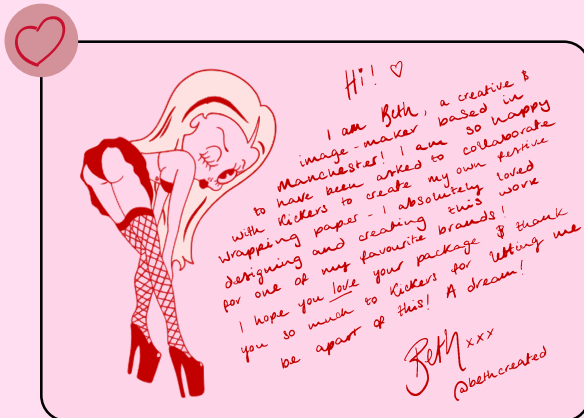 Hi! ♡
I am Beth, a creative &
image-maker based in
Manchester! I am so happy
to have been asked to collaborate
with Kickers to create my own festive
wrapping paper - I absolutely loved
designing and creating this work
for one of my favourite brands!
I hope you love your package & thank
you so much to Kickers for letting me
be apart of this! A dream!
Beth xxx
@bethcreated